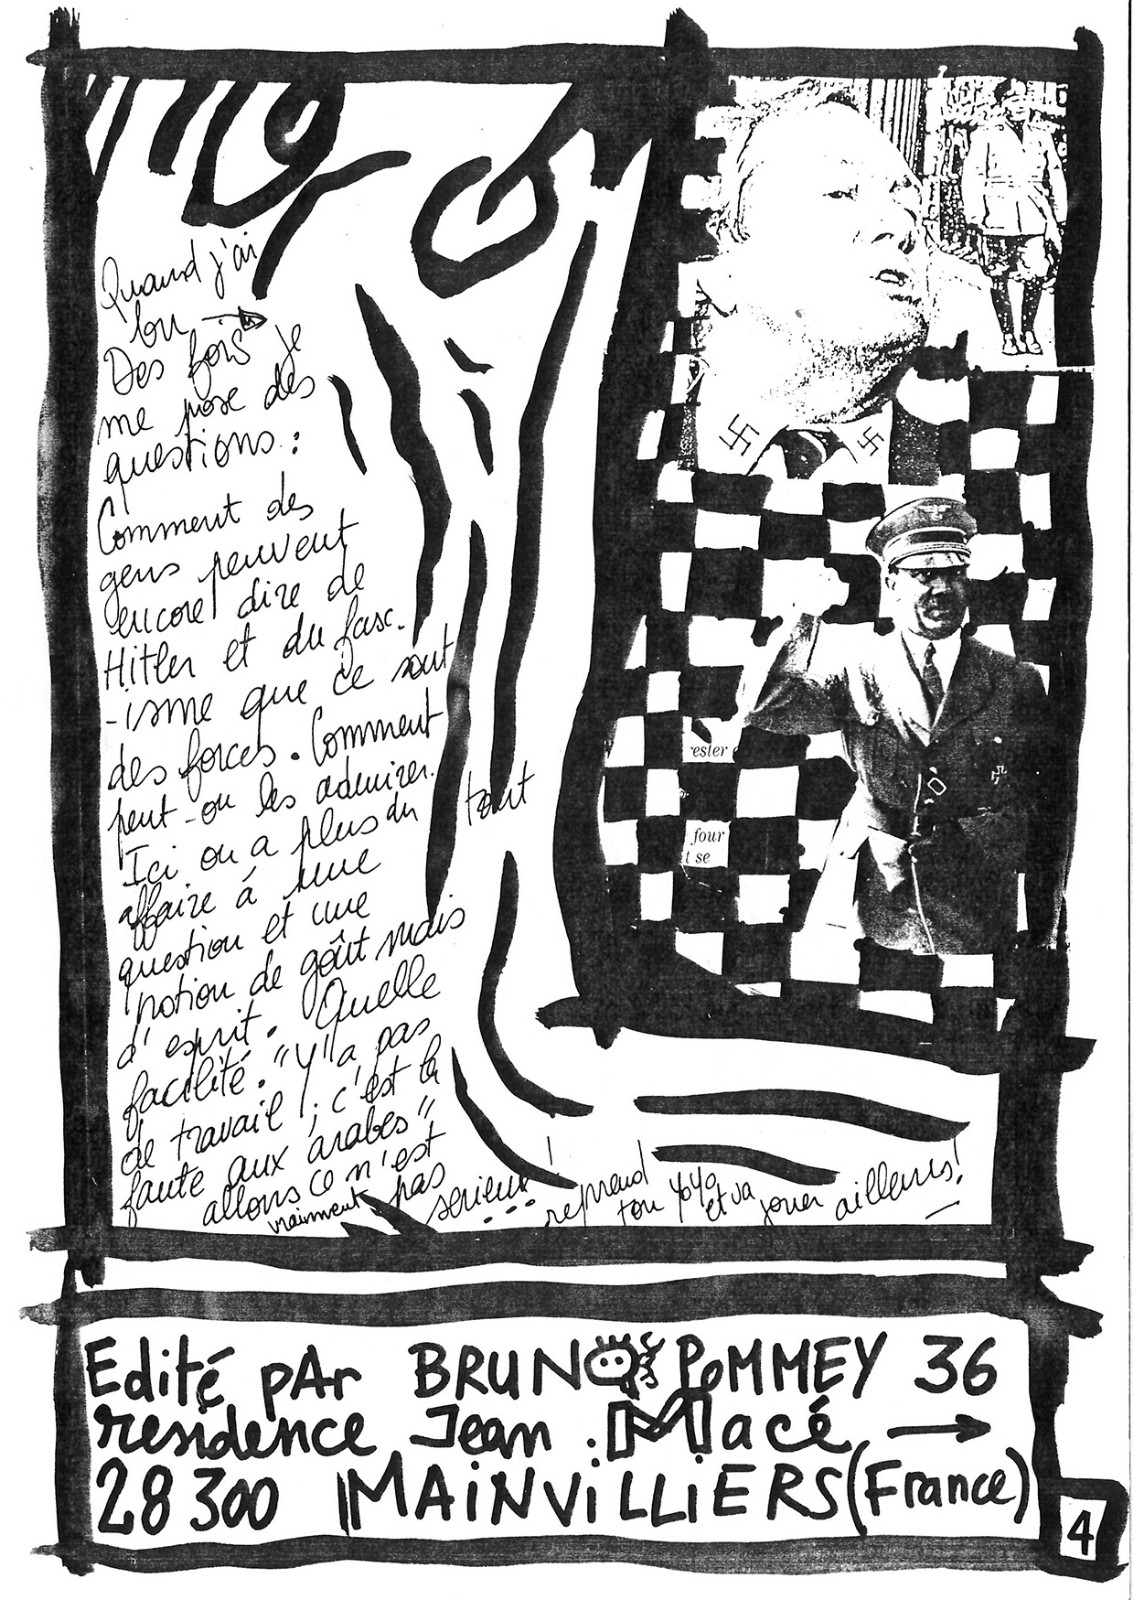 Quand j'ai
bu →
Des fois je
me pose des
questions :
Comment des
gens peuvent
encore dire de
Hitler et du fasc.
-isme que ce sont
des forces. Comment
peut-on les admirer.
Ici on a plus du tout
affaire à une
question et une
notion de goût mais
d'esprit. Quelle
facilité. "Y'a pas
de travail ; c'est la
faute aux arabes"
allons ce n'est
vraiment pas serieux...! reprend ton yoyo et va jouer ailleurs!
ester
four
t se
Edité pAr BRUNO POMMEY 36
residence Jean Macé →
28300 MAiNViLLiERS (France)
4